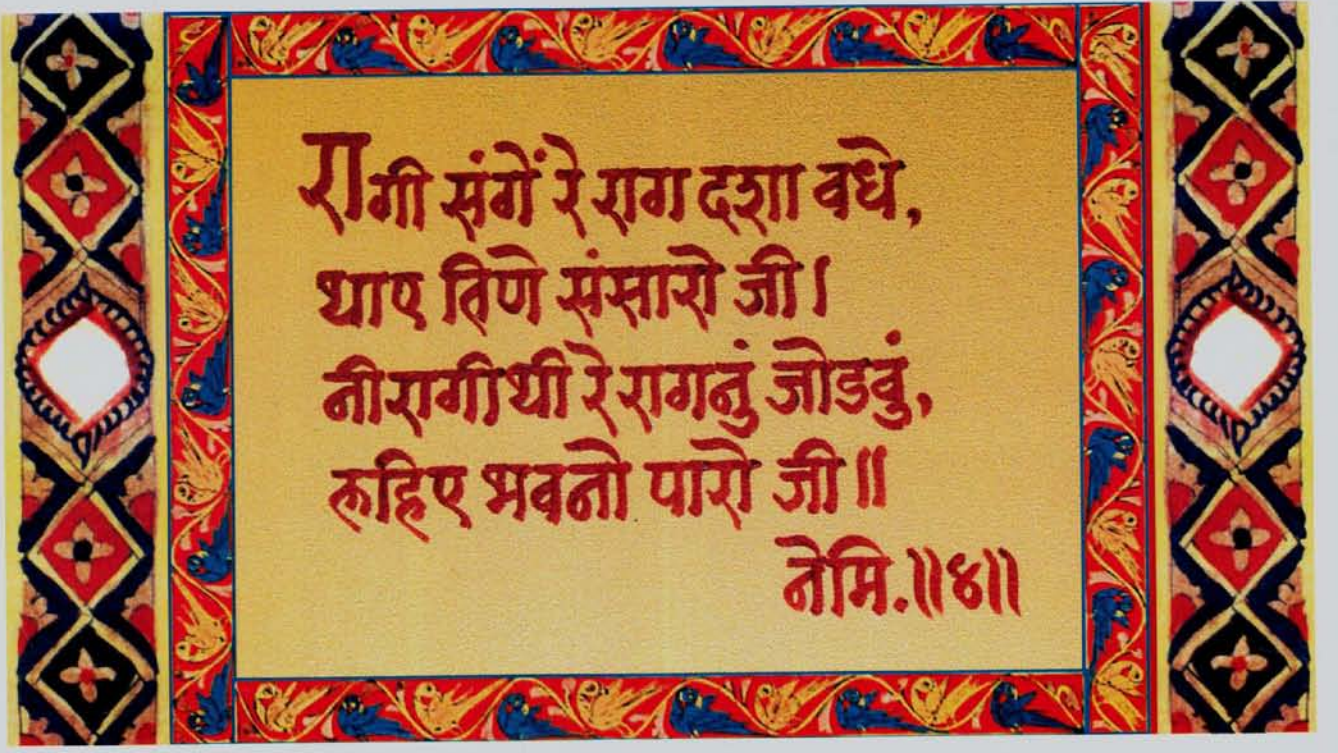 रागी संगें रे राग दशा वधे,
थाए तिणे संसारो जी।
नीरागीथी रे रागनुं जोडवुं,
लहिए भवनो पारो जी॥
नेमि.॥४॥